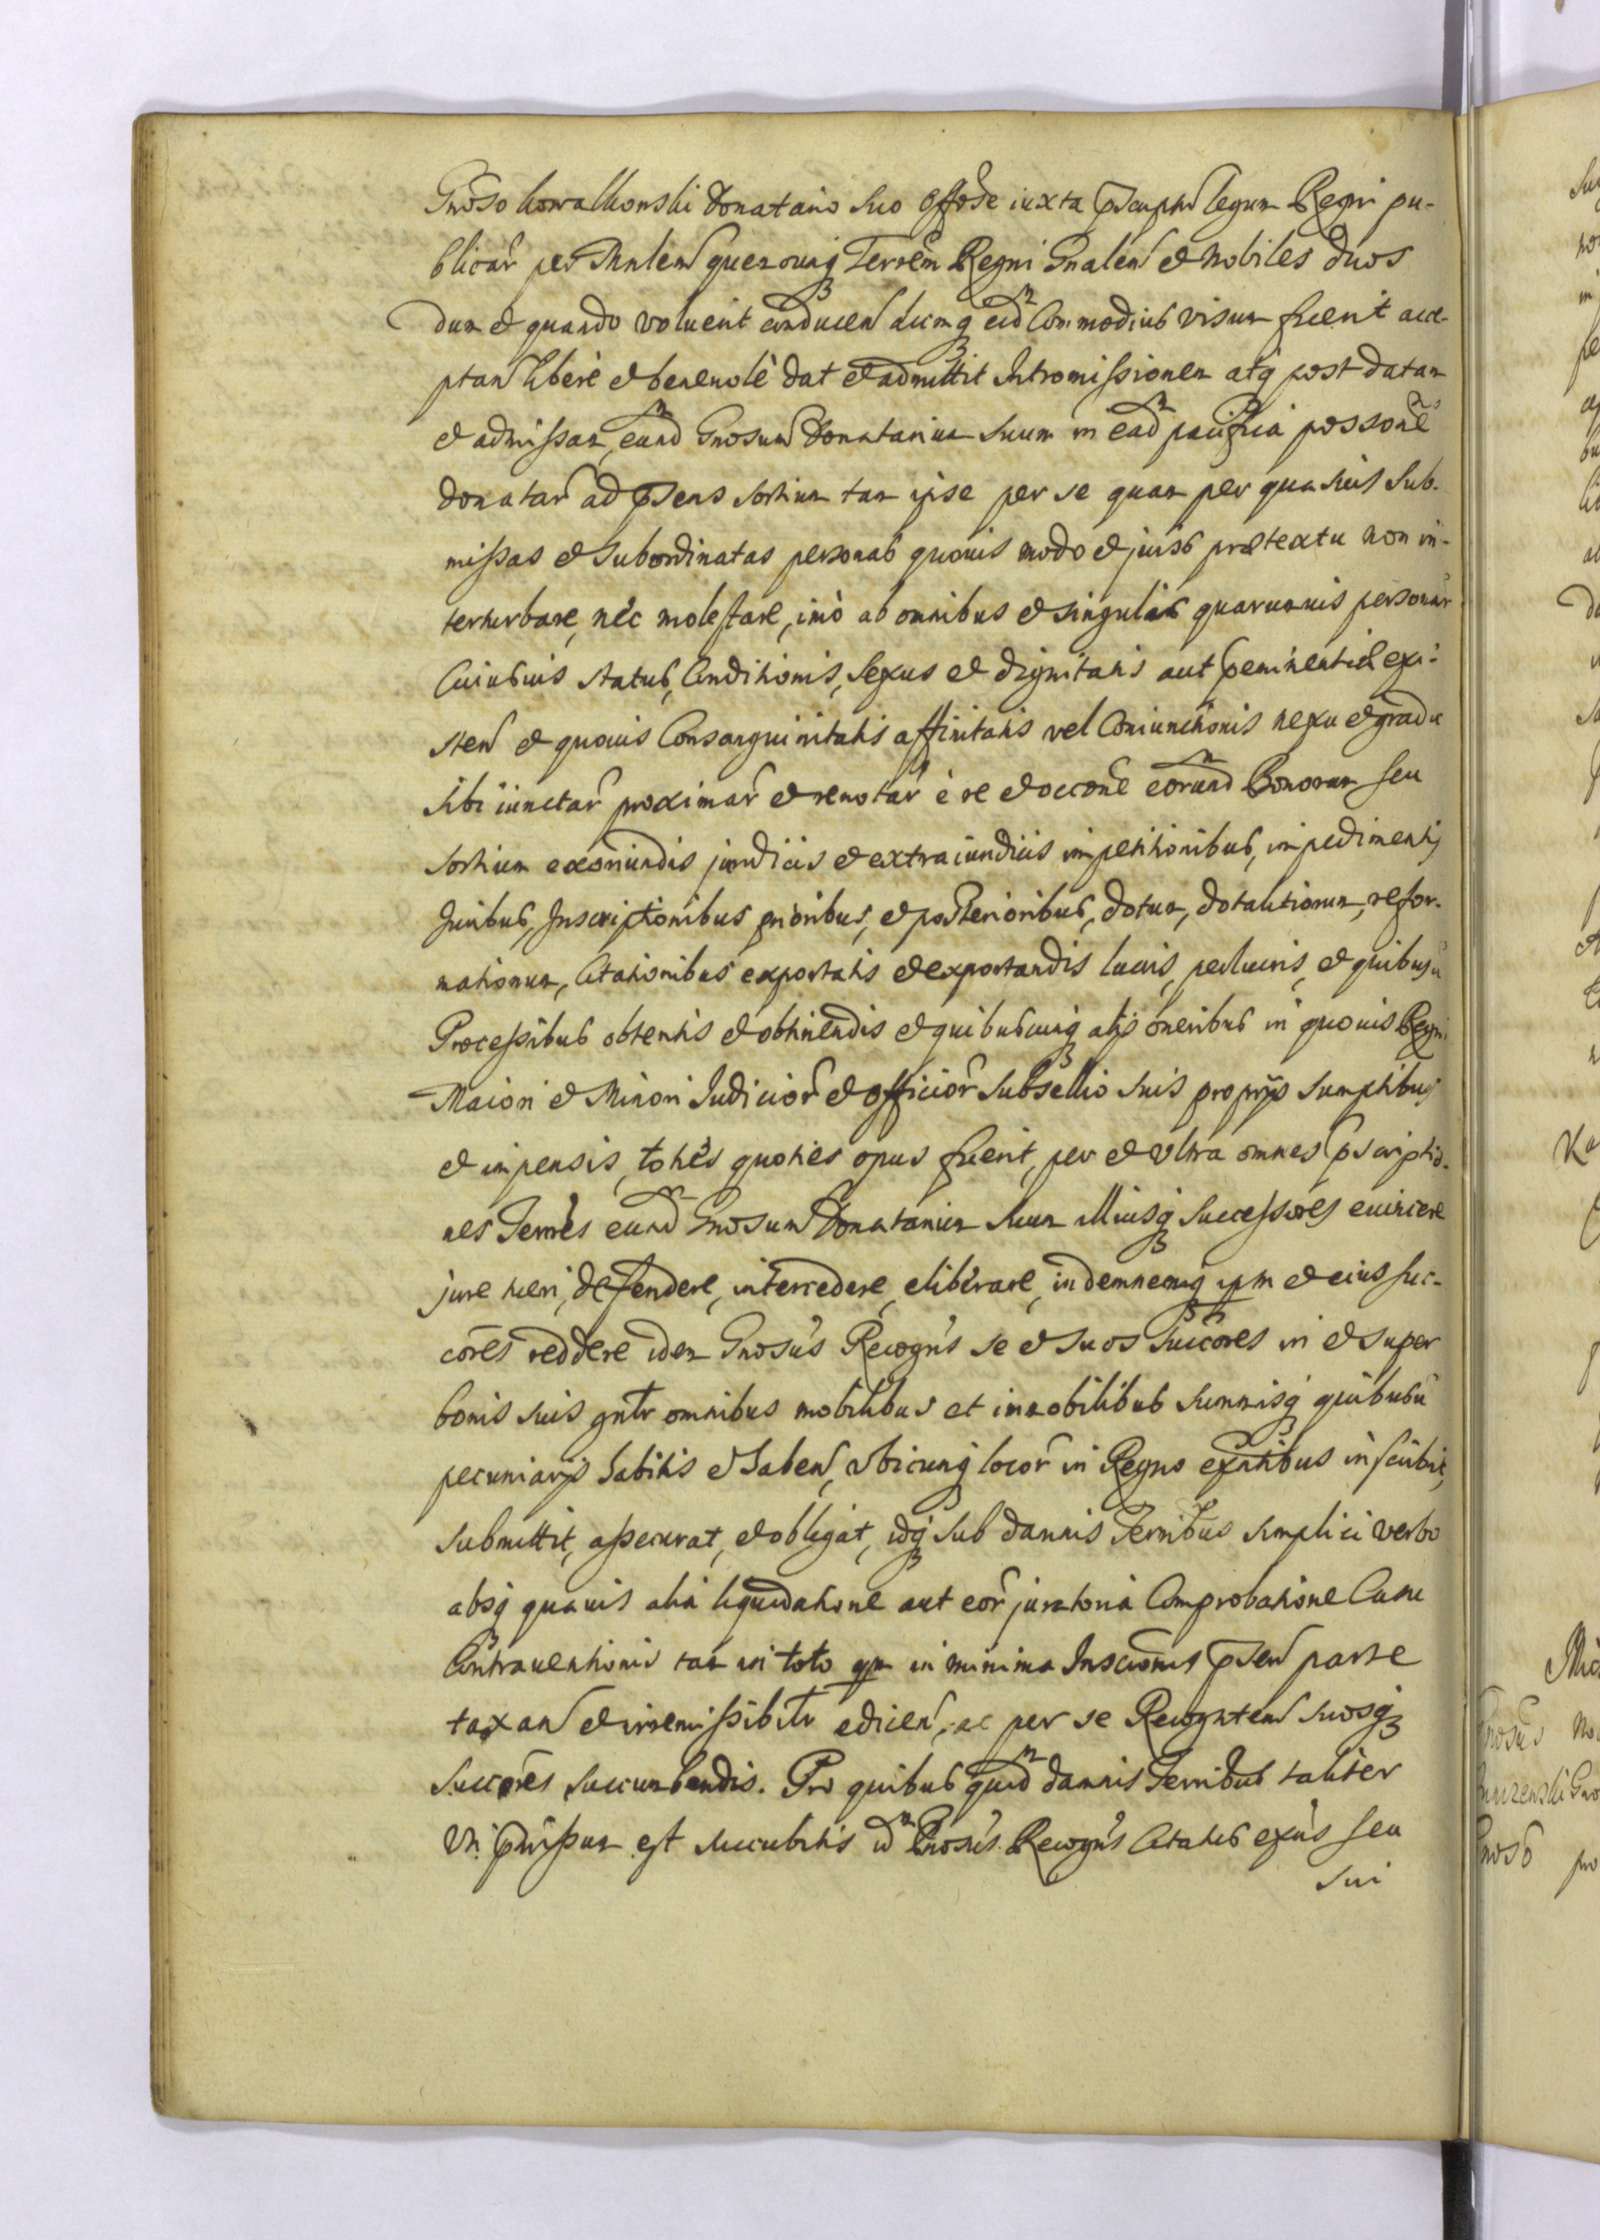 Gnoso Kowalkowski Donatario suo Offose iuxta pscriptu legum Regni pu-
blicar per Mnlem quemcunq Terrem Regni Gnalem et Nobiles duos
dum et quando voluerit conducen ducmq eid Commodius visum fuerit acce-
ptan libere et benevole dat et admittit Intromissionem atq post datam
et admissam, eund Gnosum Donatarium suum in ead pacifica possone
donatar ad psens sortium tam ipse per se quam per quasuis sub-
missas et subordinatas personas quouis modo et jurisb prætextu non in-
terturbare, nec molestare, imò ab omnibus et singulis quarumuis personar
Cuiusuis status, Conditionis, sexus et dignitatis aut peminentiæ exi-
sten et quouis Consanguinitatis affinitatis vel Coniunctionis nexu et gradu
sibi iunctar proximar et remotar è re et occone eorund Bonorum seu
sortium exoriundis juridicis et extraiuridicis impetitionibus, impedimentis
Juribus, Inscriptionibus prioribus, et posterioribus, dotum, dotalitiorum, refor-
mationum, Citationibus exportatis et exportandis lucris, perlucris, et quibusu
Processibus obtentis et obtinendis et quibuscunq alijs oneribus in quouis Regni
Maiori et Minori Judicior et officior subsellio suis proprijs sumptibus
et impensis, toties quoties opus fuerit, per et vltra omnes pscriptio-
nes Terrres eund Gnosum Donatarium suum illiusq successores euincere
jure tueri, defendere, intercedere, eliberare, indemnemq ipm et eius suc-
cores reddere idem Gnosus Recogns se et suos succores in et super
bonis suis gntr omnibus mobilibus et immobilibus summisq quibusu
pecuniarijs habitis et haben, vbicunq locor in Regno exntibus inscribit,
submittit, assecurat, et obligat, idq sub damnis Terribus simplici verbo
absq quauis alia liquidatione aut eor juratoria Comprobatione Casu
Contrauentionis tam in toto qm in minima Inscronis psen parte
taxan et irremissibilr edicen, ac per se Recognten suosq
succores succumbendis. Pro quibus quid damnis Terribus taliter
vti pmissum est succubitis id Gnosus Recogns Citatus exns seu
sui